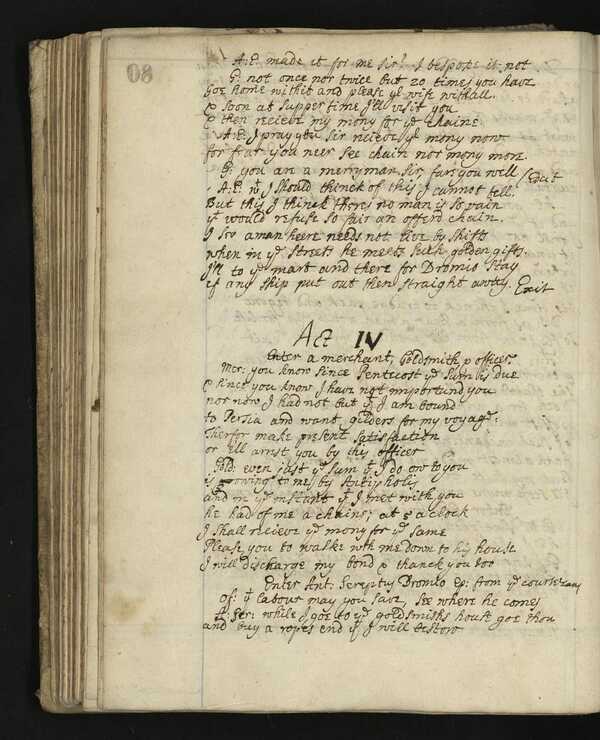 80
A:E: made it for me sir! I bespoke it not
G: not once nor twice but 20 times you have
Goe home with it and please yr wife withall.
& soon at supper time I'll visit you
& then recieve my mony for ye chaine.
A:E: I pray you sir recieve ye mony now
for fear you neer see chain nor mony more.
G: you are a merry man sir, fare you well Exit
A:E: wt I should thinck of this I cannot tell:
But this I thinck theres no man is so vain
yt would refuse so fair an offerd chain.
I see a man heere needs not live by shifts
when in ye streets he meets such golden gifts.
I'll to ye mart and there for Dromio stay
if any ship put out then straight away. Exit
Act IV
Enter a merchant, Goldsmith & officer
Mer: you know since Pentecost ye sum is due
& since you know I have not importund you
nor now I had not but yt I am bound
to Persia and want gilders for my voyage:
Therfor make present satisfaction
or Ill arrest you by this officer
Gold: even just ye sum yt I do ow to you
is growing to me by Antipholis
and in ye instant yt I met with you
he had of me a chaine; at 5 a clock
I shall recieve ye mony for ye same
Please you to walke with me down to his house
I will discharge my bond & thanck you too
Enter Ant: Dromio Ep: from ye courtezans
of: yt labour may you save, see where he comes
while I goe to ye goldsmiths house goe thou
and buy a ropes end yt I will bestow